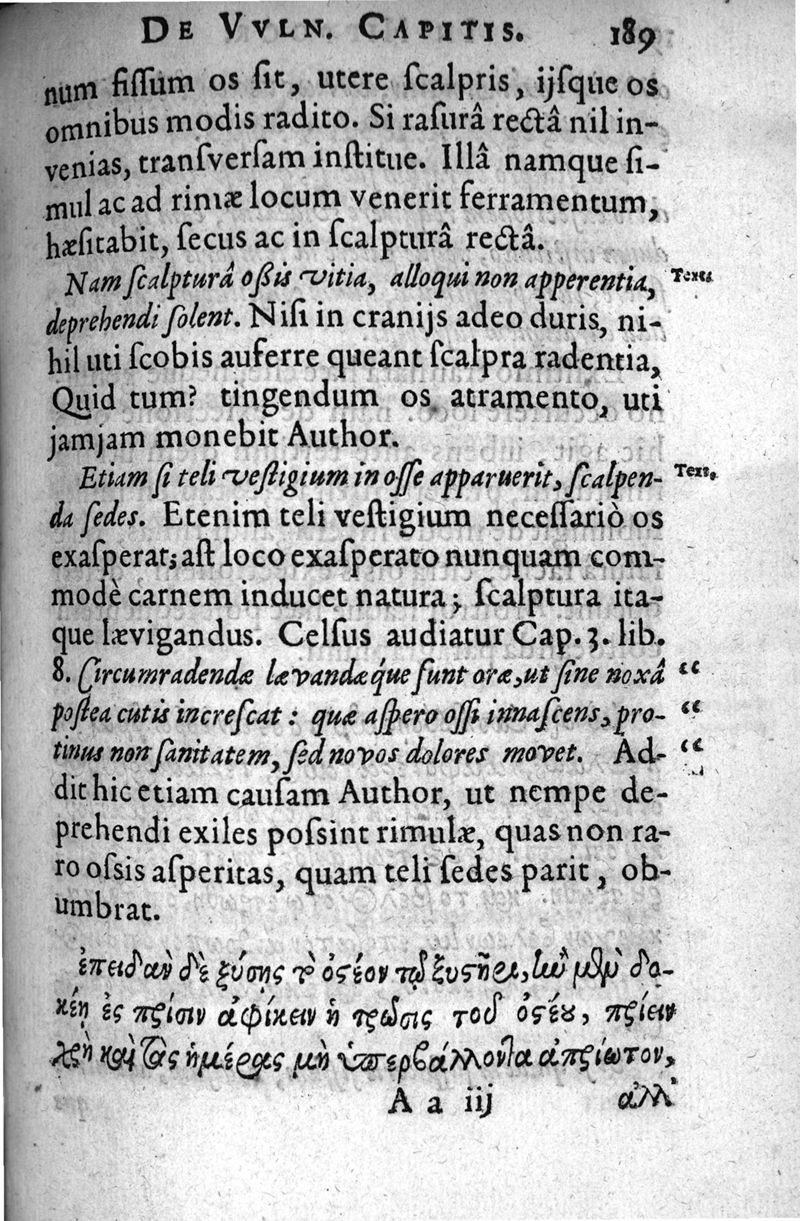 DE VVLN. CAPITIS. 189
num fiſſum os ſit, utere ſcalpris, ijſque os
omnibus modis radito. Si raſurâ rectâ nil in-
venias, tranſverſam inſtitue. Illâ namque ſi-
mul ac ad rimæ locum venerit ferramentum,
hæſitabit, ſecus ac in ſcalpturâ rectâ.
Nam ſcalpturâ oſsis vitia, alloqui non apperentia, Text.
deprehendi ſolent. Niſi in cranijs adeo duris, ni-
hil uti ſcobis auferre queant ſcalpra radentia,
Quid tum? tingendum os atramento, uti
jamjam monebit Author.
Etiam ſi teli veſtigium in oſſe apparuerit, ſcalpen- Text.
da ſedes. Etenim teli veſtigium neceſſariò os
exaſperat; aſt loco exaſperato nunquam com-
modè carnem inducet natura; ſcalptura ita-
que lævigandus. Celſus audiatur Cap. 3. lib.
8. Circumradendæ lævandæq́ue ſunt oræ, ut ſine noxâ “
poſtea cutis increſcat: quæ aſpero oſſi innaſcens, pro- “
tinus non ſanitatem, ſed novos dolores movet. Ad- “
dit hic etiam cauſam Author, ut nempe de-
prehendi exiles poſsint rimulæ, quas non ra-
ro oſsis aſperitas, quam teli ſedes parit, ob-
umbrat.
ἐπειδὰν δὲ ξύσης τὸ ὀστέον τῷ ξυστῆρι, ἢν μὲν δο-
κέῃ ἐς πρίσιν ἀφίκειν ἡ τρῶσις τοῦ ὀστέου, πρίειν
χρὴ καὶ τὰς ἡμέρας μὴ ὑπερβάλλοντα ἀπρίωτον,
A a iij ἀλλ'